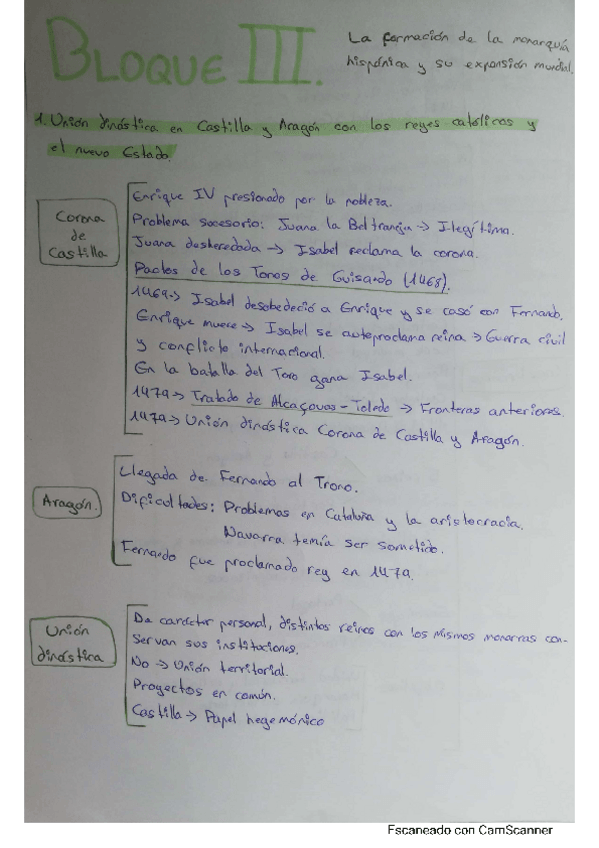 BLOQUE III.
La formación de la monarquía
hispánica y su expansión mundial.
1. Unión dinástica en Castilla y Aragón con los reyes católicos y
el nuevo Estado.
Corona
de
Castilla
Enrique IV presionado por la nobleza.
Problema sucesorio: Juana la Beltraneja → Ilegítima.
Juana desheredada → Isabel reclama la corona.
Pactos de los Toros de Guisando (1468).
1469 → Isabel desobedeció a Enrique y se casó con Fernando.
Enrique muere → Isabel se autoproclama reina → Guerra civil
y conflicto internacional.
En la batalla del Toro gana Isabel.
1479 → Tratado de Alcaçovas-Toledo → Fronteras anteriores.
1479 → Unión dinástica Corona de Castilla y Aragón.
Aragón.
Llegada de Fernando al Trono.
Dificultades: Problemas en Cataluña y la aristocracia.
Navarra temía ser sometido.
Fernando fue proclamado rey en 1479.
Unión
dinástica
De carácter personal, distintos reinos con los mismos monarras con-
servan sus instituciones.
No → Unión territorial.
Proyectos en común.
Castilla → Papel hegemónico
Escaneado con CamScanner